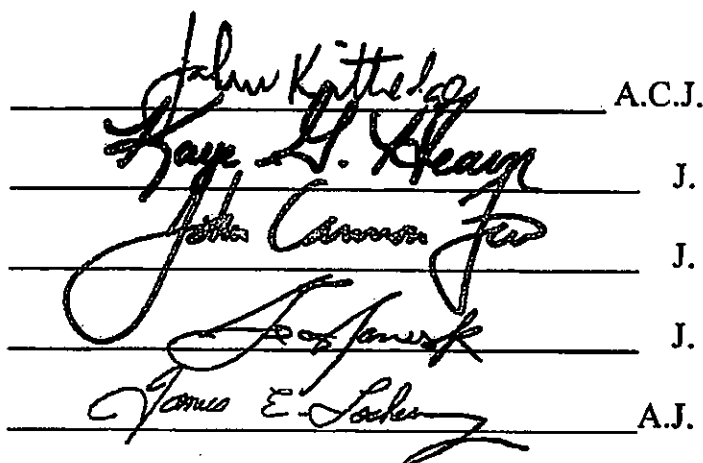 John Kittredge A.C.J.
Kaye G. Hearn J.
John Cannon Few J.
J.
James E. Lockemy A.J.